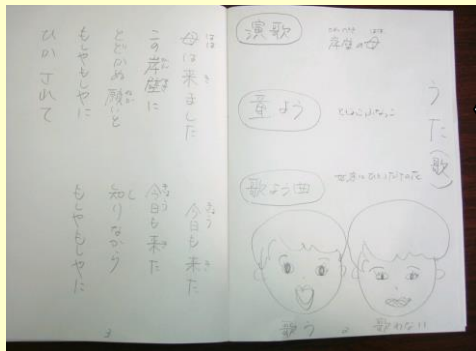 うた(歌)
演歌
岸壁の母
童よう
歌よう曲
歌う
歌わない
母は来ました 今日も来た
この岸壁に 今日も来た
とどかぬ願いと 知りながら
もしやもしやに もしやもしやに
ひかされて